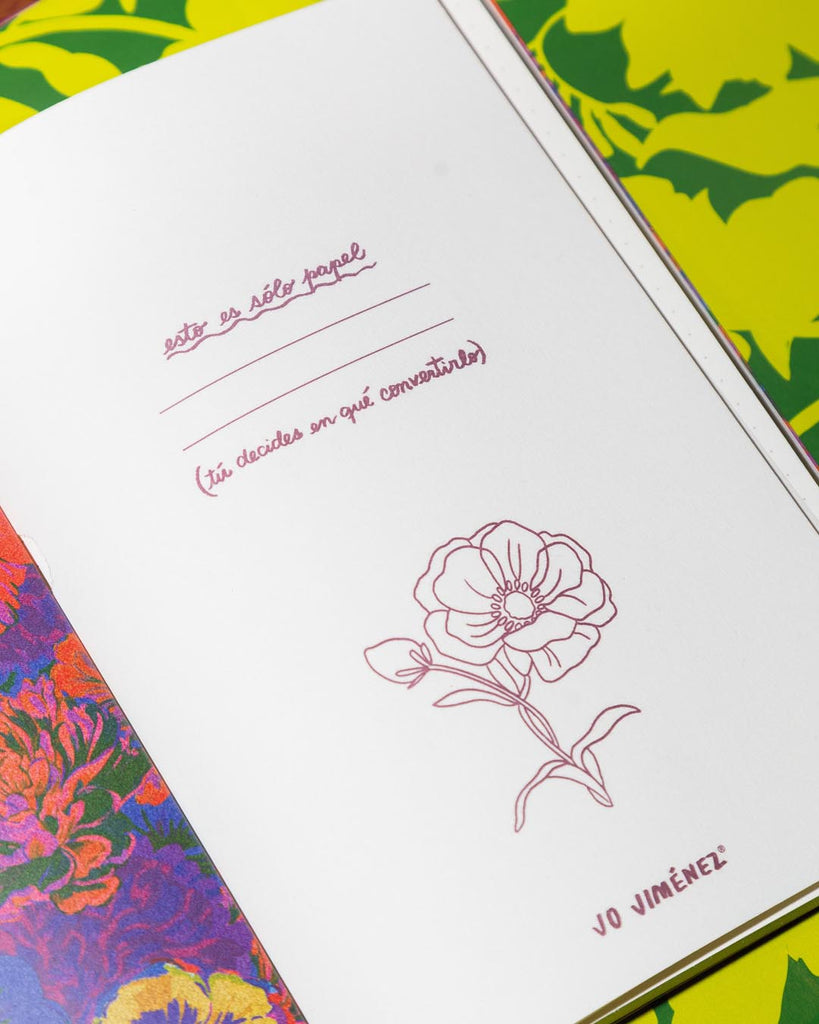 esto es sólo papel
(tú decides en qué convertirlo)
JO JIMÉNEZ®